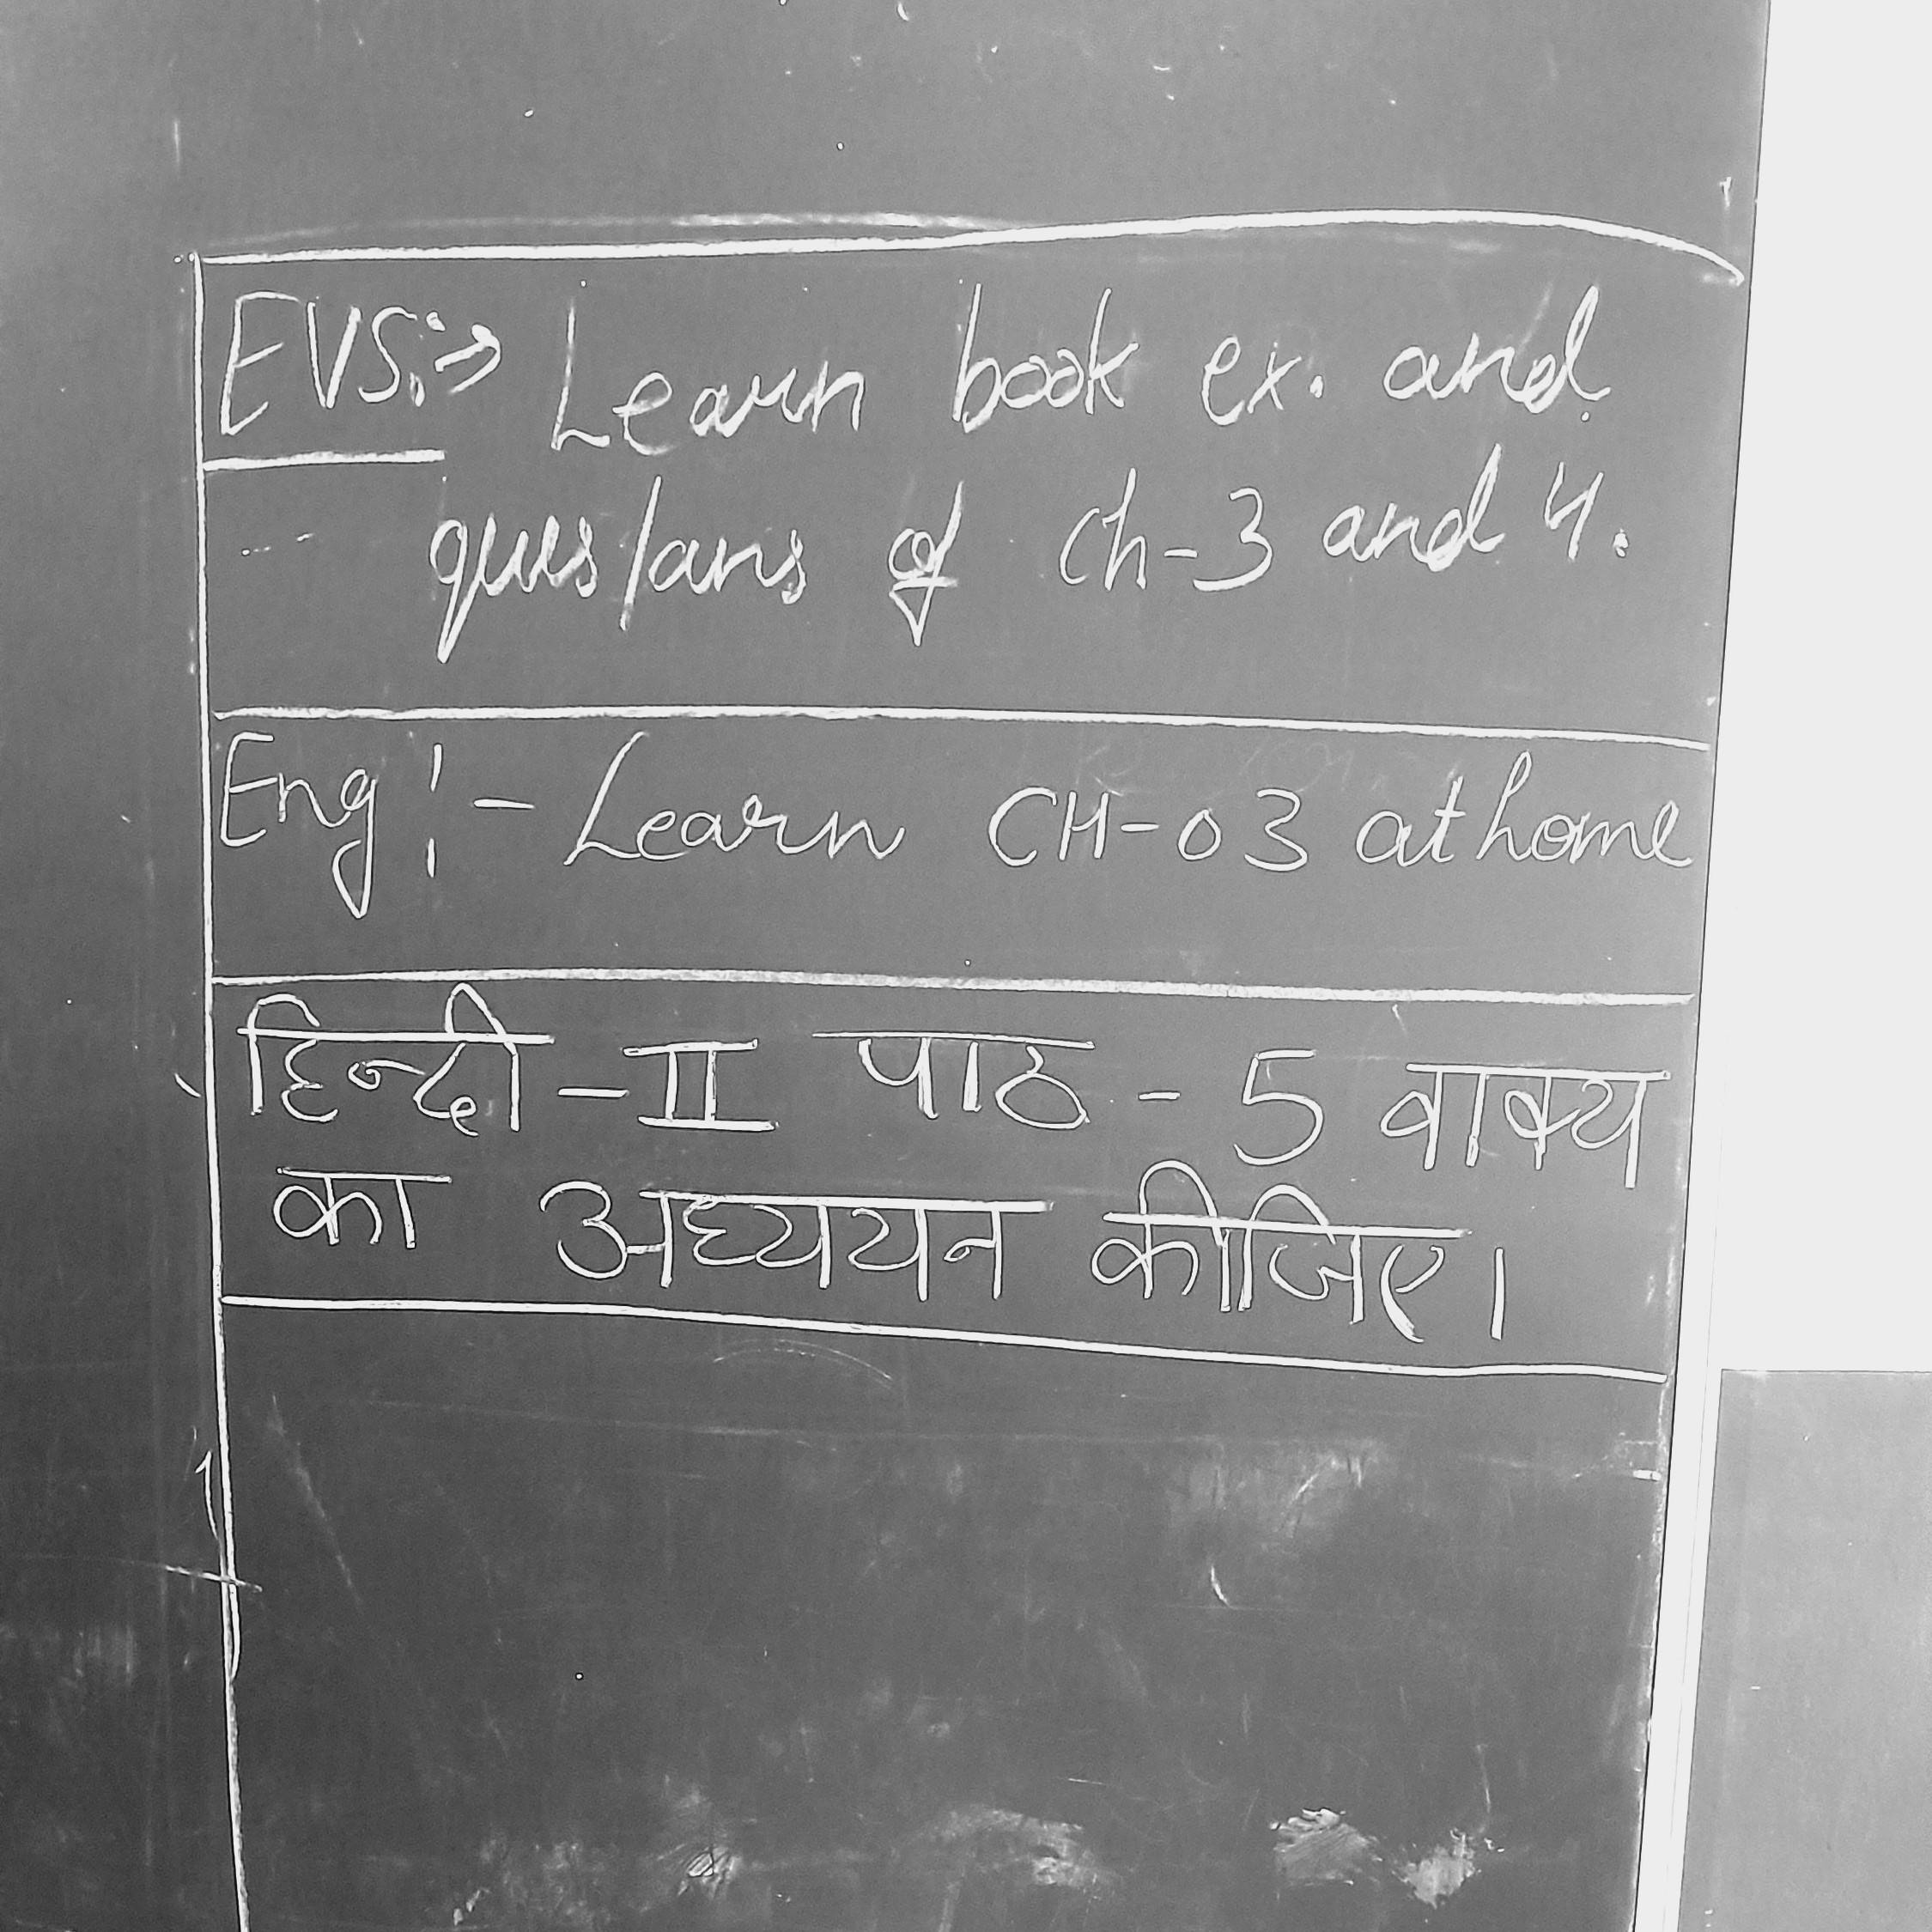 EVS:→ Learn book ex. and
ques/ans of Ch-3 and 4.
Eng :- Learn CH-03 at home
हिन्दी - II पाठ - 5 वाक्य
का अध्ययन कीजिए।